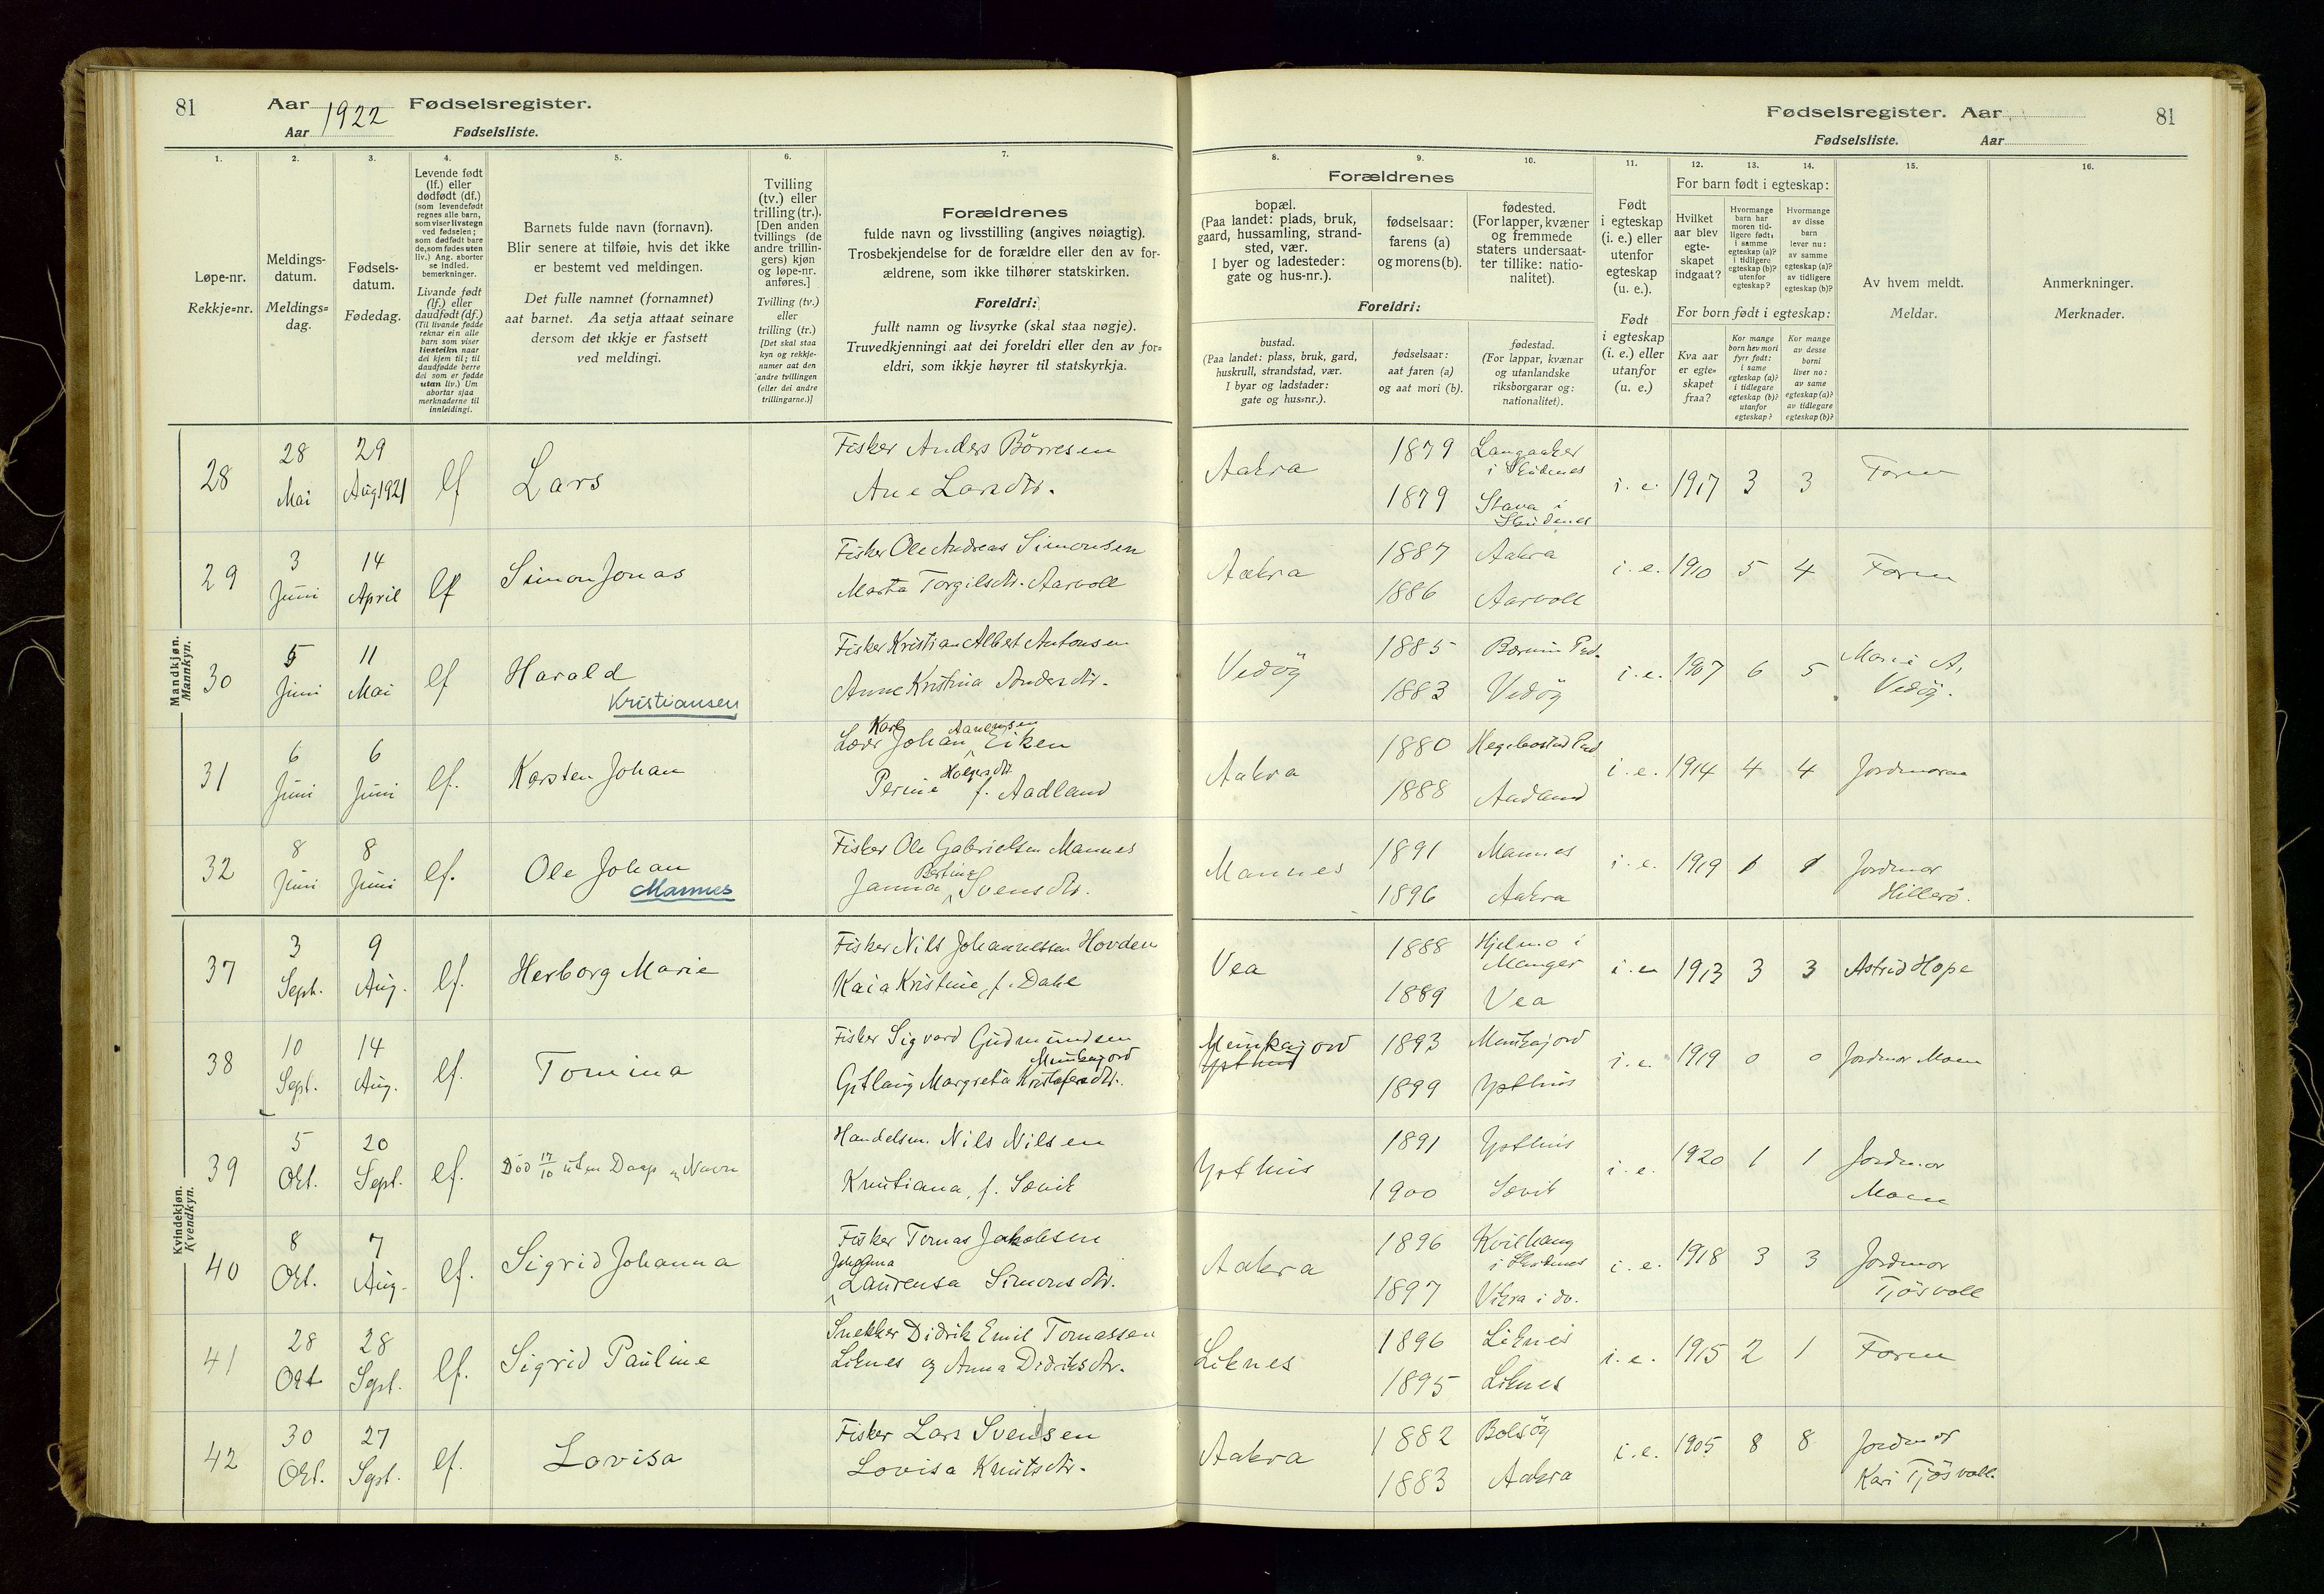 81
Aar 1922 Fødselsregister.
Aar Fødselsliste.
Fødselsregister. Aar
81
Fødselsliste. Aar
1.
Løpe-nr.
Rekkje-nr.
2.
Meldings-
datum.
Meldings-
dag.
3.
Fødsels-
datum.
Fødedag.
4.
Levende født
(lf.) eller
dødfødt (df.)
(som levendefødt
regnes alle barn,
som viser livstegn
ved fødselen;
som dødfødt bare
de, som fødes uten
liv.) Ang. aborter
se indled.
bemerkninger.
Livande født
(lf.) eller
daudfødt (df.)
(Til livande fødde
reknar ein alle
barn som viser
livsteikn naar
dei kjem til; til
daudfødde berre
dei som er fødde
utan liv.) Um
abortar sjaa
merknaderne til
innleidingi.
5.
Barnets fulde navn (fornavn).
Blir senere at tilføie, hvis det ikke
er bestemt ved meldingen.
Det fulle namnet (fornamnet)
aat barnet. Aa setja attaat seinare
dersom det ikkje er fastsett
ved meldingi.
6.
Tvilling
(tv.) eller
trilling (tr.).
[Den anden
tvillings (de
andre trillin-
gers) kjøn
og løpe-nr.
anføres.]
Tvilling (tv.)
eller
trilling (tr.)
[Det skal staa
kyn og rekkje-
numer aat den
andre tvillingen
(eller dei andre
trillingarne.)]
7.
Forældrenes
fulde navn og livsstilling (angives nøiagtig).
Trosbekjendelse for de forældre eller den av for-
ældrene, som ikke tilhører statskirken.
Foreldri:
fullt namn og livsyrke (skal staa nøgje).
Truvedkjenningi aat dei foreldri eller den av for-
eldri, som ikkje høyrer til statskyrkja.
Forældrenes
8.
bopæl.
(Paa landet: plads, bruk,
gaard, hussamling, strand-
sted, vær.
I byer og ladesteder:
gate og hus-nr.).
9.
fødselsaar:
farens (a)
og morens (b).
10.
fødested.
(For lapper, kvæner
og fremmede
staters undersaat-
ter tillike: natio-
nalitet).
Foreldri:
bustad.
(Paa landet: plass, bruk, gard,
huskrull, strandstad, vær.
I byar og ladstader:
gate og hus-nr.).
fødselsaar:
aat faren (a)
og aat mori (b).
fødestad.
(For lappar, kvænar
og utanlandske
riksborgarar og:
nationalitet).
11.
Født
i egteskap
(i. e.) eller
utenfor
egteskap
(u. e.).
Født
i egteskap
(i. e.) eller
utanfor
(u. e.)
12. 13. 14.
For barn født i egteskap:
Hvilket
aar blev
egte-
skapet
indgaat?
Hvormange
barn har
moren tid-
ligere født:
i samme
egteskap (a)?
i tidligere
egteskap (b)?
utenfor
egteskap?
Hvormange
av disse
barn
lever nu:
av samme
egteskap (a)?
av tidligere
egteskap (b)?
For born født i egteskap:
Kva aar
er egte-
skapet
fraa?
Kor mange
born hev mori
fyrr født:
i same
egteskap (a)?
i tidlegare
egteskap (b)?
utanfor
egteskap?
Kor mange
av desse
borni
liver no:
av same
egteskap (a)?
av tidlegare
egteskap (b)?
15.
Av hvem meldt.
Meldar.
16.
Anmerkninger.
Merknader.
Mandkjøn.
Mannkyn.
28
28
Mai
29
Aug 1921
lf
Lars
Fisker Anders Börresen
Ane Larsdtr.
Aakra
1879
1879
Langaaker
i Skudenes
Stava i
Skudenes
i. e. 1917 3 3
Faren
29
3
Juni
14
April
lf
Simon Jonas
Fisker Ole Andreas Simonsen
Marta Torgilsdtr. Aarvoll
Aakra
1887
1886
Aakra
Aarvoll
i. e. 1910 5 4
Faren
30
5
Juni
11
Mai
lf
Harald
Kristiansen
Fisker Kristian Albert Antonsen
Anne Kristina Andersdtr.
Vedöy
1885
1883
Vedöy
i. e. 1907 6 5
Marie A.
Vedöy.
31
6
Juni
6
Juni
lf.
Karsten Johan
Karl Aanensen
Johan Eiken
Holgersdtr.
Perine f. Aadland
Aakra
1880
1888
Aadland
i. e. 1914 4 4
Jordmoren
32
8
Juni
8
Juni
lf.
Ole Johan
Mannes
Fisker Ole Gabrielsen Mannes
Bertine
Janna Svensdtr.
Mannes
1891
1896
Mannes
Aakra
i. e. 1919 1 1
Jordmor
Hillerö.
Kvindekjøn.
Kvendkyn.
37
3
Sept.
9
Aug.
lf.
Herborg Marie
Fisker Nils Johannessen Hovden
Kaia Kristine, f. Dale
Vea
1888
1889
Hjelmo i
Manger
Vea
i. e 1913 3 3
Astrid Hope
38
10
Sept.
14
Aug.
lf.
Tomina
Fisker Sigvard Gudmundsen
Munkajord
Gitlaug Margreta Kristofersdtr.
Munkajord
Ysthus
1893
1899
Munkajord
Ysthus
i. e. 1919 0 0
Jordmor Moen
39
5
Okt.
20
Sept.
lf.
Död 17/10 uten Daap og Navn
Handelsm. Nils Nilsen
Kristiana, f. Sævik
Ysthus
1891
1900
Ysthus
Sævik
i. e. 1920 1 1
Jordmor
Moen
40
8
Okt.
7
Aug.
lf.
Sigrid Johanna
Fisker Tomas Jakobsen
Johanna
Laurensa Simonsdtr.
Aakra
1896
1897
Kvilhaug
i Skudenes
Vikra i do.
i. e. 1918 3 3
Jordmor
Tjösvoll
41
28
Okt
28
Sept.
lf.
Sigrid Pauline
Snekker Didrik Emil Tomassen
Liknes og Anna Didriksdtr.
Liknes
1896
1895
Liknes
Liknes
i. e. 1915 2 1
Faren
42
30
Okt.
27
Sept.
lf.
Lovisa
Fisker Lars Svendsen
Lovisa Knutsdtr.
Aakra
1882
1883
Bolsöy
Aakra
i. e. 1905 8 8
Jordmor
Kari Tjösvoll.